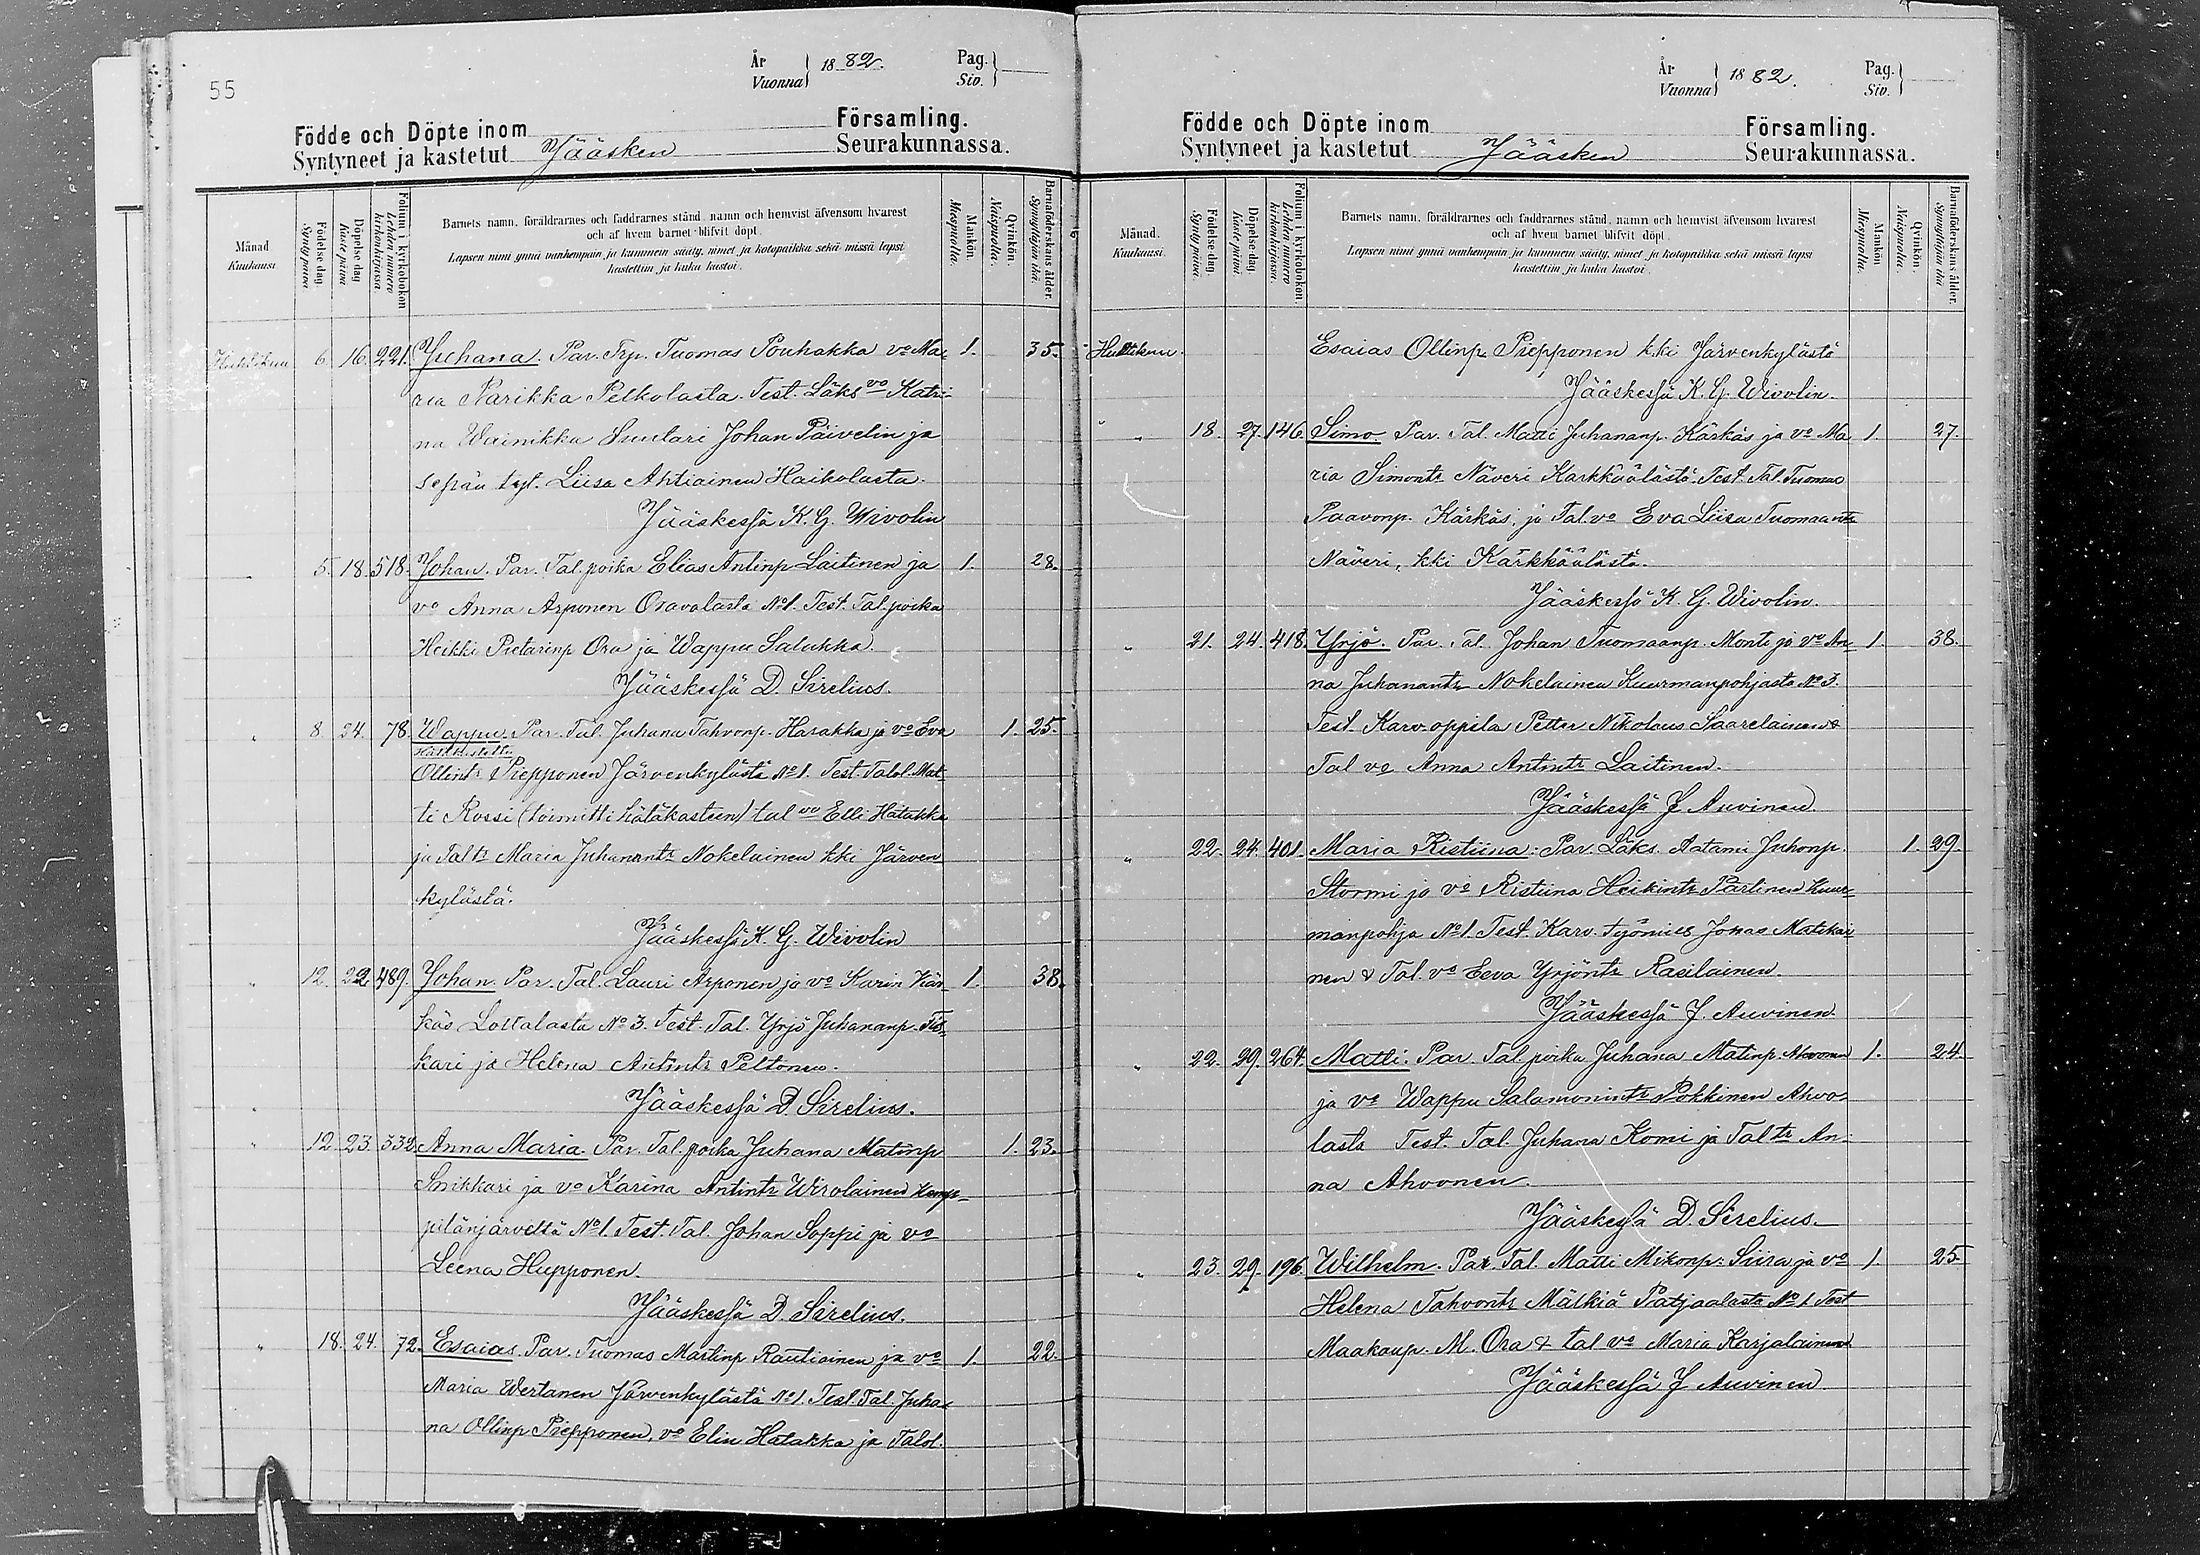 55
År 1882. Pag.
Vuonna Siv.
Födde och Döpte inom Församling.
Syntyneet ja kastetut Jääsken Seurakunnassa.
Månad Kuukausi
Födelse dag. Synty päivä.
Döpelse dag Kaste päivä
Folium i kyrkobokon Lehden numero kirkonkirjassa.
Barnets namn, föräldrarnes och faddrarnes stånd, namn och hemvist äfvensom hvarest
och af hvem barnet blifvit döpt.
Lapsen nimi ynnä vanhempain ja kummein sääty, nimet ja kotopaikka sekä missä lapsi
kastettiin ja kuka kastoi.
Mankön. Miespuolia.
Qvinkön. Naispuolia.
Barnaföderskans ålder. Synnyttäjän ikä.
Huhtikuu 6. 16. 221. Juhana. Par. Trp. Tuomas Pouhakka vo Ma- 1. 35.
ria Narikka Pelkolasta. Test. Läks vo Katri-
na Wainikka Suutari Johan Päivelin ja
sepän tyt. Liisa Ahtiainen Haikolasta.
Jääskessä K. G. Wivolin
5. 18. 518. Johan. Par. Tal. poika Elias Antinp Laitinen ja 1. 28.
vo Anna Arponen Oravalasta No1. Test. Tal. poika
Heikki Pietarinp Ora ja Wappu Salukka.
Jääskessä D. Sirelius.
" 8. 24. 78. Wappu. Par. Tal. Juhana Tahvonp. Harakka ja vo Eva 1. 25.
Ollintr Piepponen Järvenkylästä No1. Test. Talol. Mat
ti Rossi (toimitti hätäkasteen) tal vo Elli Hatakka
ja Tal tr Maria Juhanantr Nokelainen kki Järven
kylästä.
Jääskessä K. G. Wivolin
" 12. 22. 489. Johan. Par. Tal. Lauri Arponen ja vo Karin Kär- 1. 38.
käs Lottalasta No 3. Test. Tal. Yrjö Juhananp. Tis-
kari ja Helena Antintr Peltonen.
Jääskessä D Sirelius.
" 12. 23. 332. Anna Maria. Par. Tal. poika Juhana Matinp 1. 23.
Snikkari ja vo Karina Antintr Wirolainen Kemp-
pilänjärveltä No1. Test. Tal. Johan Soppi ja vo
Leena Hupponen.
Jääskessä D. Sirelius.
" 18. 24. 72. Esaias. Par. Tuomas Martinp Rautiainen ja vo 1. 22.
Maria Wertanen Järvenkylästä No1. Test. Tal. Juha-
na Ollinp Piepponen, vo Elin Hatakka ja Talol.
År 1882. Pag.
Vuonna Siv.
Födde och Döpte inom Församling.
Syntyneet ja kastetut Jääsken Seurakunnassa.
Månad. Kuukausi.
Födelse dag. Synty päivä.
Döpelse dag. Kaste päivä.
Folium i kyrkobokon. Lehden numero kirkonkirjassa.
Barnets namn, föräldrarnes och faddrarnes stånd, namn och hemvist äfvensom hvarest
och af hvem barnet blifvit döpt.
Lapsen nimi ynnä vanhempain ja kummein sääty, nimet ja kotopaikka sekä missä lapsi
kastettiin ja kuka kastoi.
Mankön Miespuolia.
Qvinkön. Naispuolia.
Barnaföderskans ålder. Synnyttäjän ikä
Huhtikuu. Esaias Ollinp. Piepponen kki Järvenkylästä
Jääskessä K. G. Wivolin.
" 18. 27. 146. Simo. Par. Tal. Matti Juhananp. Kärkäs ja vo Ma 1. 27.
ria Simontr Näveri Kärkkäälästä. Test. Tal. Tuomas
Paavonp. Kärkäs ja Tal. vo Eva Liisa Tuomaantr
Näveri, kki Kärkkäälästä.
Jääskessä K. G. Wivolin.
" 21. 24. 418. Yrjö. Par. Tal. Johan Tuomaanp. Monti ja vo An 1. 38.
na Juhanantr Nokelainen Kuurmanpohjasta No 3.
Test. Karv. oppila Petter Nikolaus Saarelainen &
Tal vo Anna Antintr Laitinen.
Jääskessä J Auvinen
" 22. 24. 401. Maria Ristiina: Par. Läks. Aatami Juhonp. 1. 29.
Stormi ja vo Ristiina Heikintr Partinen Kuur-
manpohja No1. Test. Karv. työmies Jonas Matikai
nen & Tal. vo Eeva Yrjöntr Rasilainen.
Jääskessä J. Auvinen.
" 22. 29. 264. Matti. Par. Tal. poika Juhana Matinp. Ahvonen 1. 24.
ja vo Wappu Salamonintr Pokkinen Ahvo-
lasta Test. Tal. Juhana Komi ja Tal tr An-
na Ahvonen.
Jääskessä D. Sirelius.
" 23. 29. 196. Wilhelm. Par. Tal. Matti Mikonp. Siira ja vo 1. 25
Helena Tahvontr Mälkiä Patjaalasta No 1 Test
Maakaup. M. Ora & tal vo Maria Karjalainen
Jääskessä J Auvinen